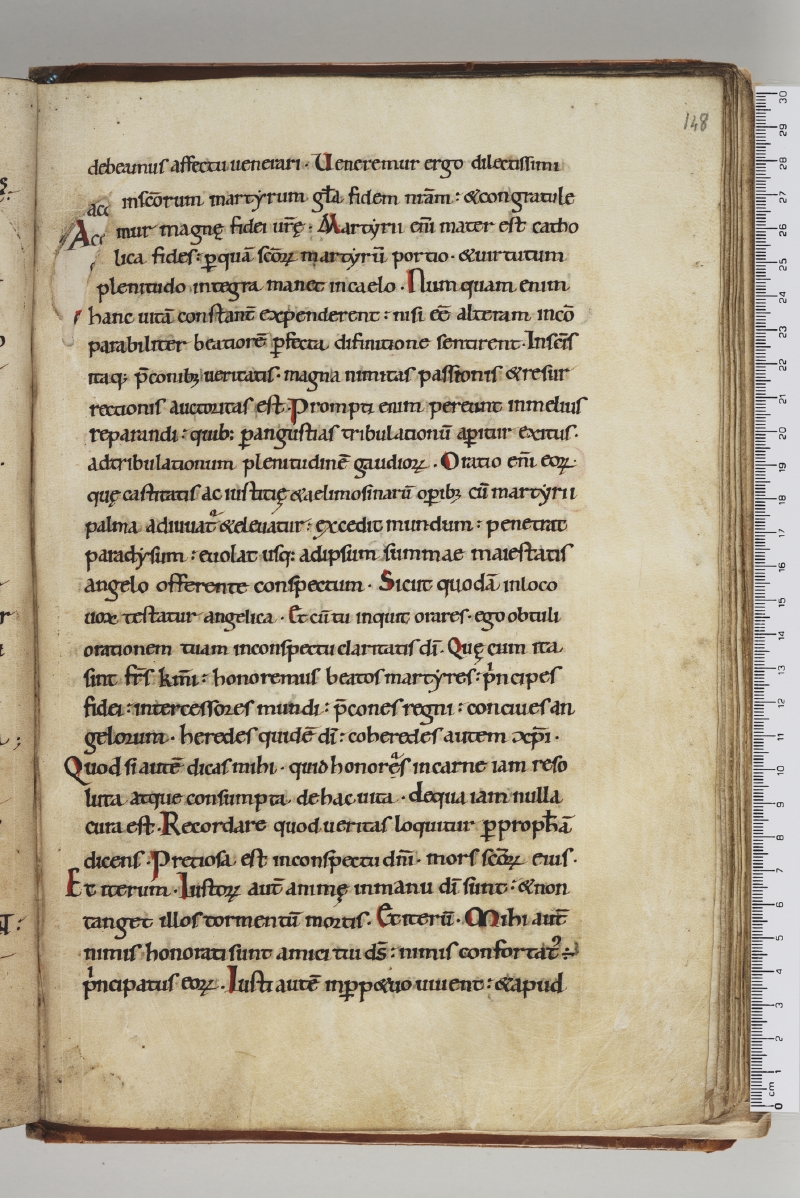 148
debeamus affectu uenerari · Ueneremur ergo dilectissimi
acc insc̄orum martẏrum gl̄a fidem nr̄am : &congratule
Acc mur magnę fidei ur̄ę : Martẏrii eni͂ mater est catho
lica fides : ꝑquā sc̄oꝝ martẏrū portio · &uirtutum
plenitudo integra manet incaelo · Numquam enim
hanc uitā constant̄ expenderent : nisi eē alteram incō
parabiliter beatiorē ꝑfecta difinitione sentirent · Insc̄is
itaq; p̄conib; ueritatis · magna nimitas passionis &resur
rectionis auctoritas est · Prompti enim pereunt inmelius
reparandi : quib: ꝑangustias tribulationū aꝑitur exitus ·
adtribulationum plenitudinē gaudioꝝ · Oratio eni͂ eoꝝ ·
quę castitatis ac iustitię &aelimosinarū oꝑib; cū martẏrii
palma adiuuatᵃ &eleuatur : excedit mundum : penetrat
paradẏsum : euolat usq; adipsum summae maiestatis
angelo offerente conspectum · Sicut quodā inloco
uox testatur angelica · Et cū tu inquit orares · ego obtuli
orationem tuam inconspectu claritatis dī · Quę cum ita
sint fr̄s km̄i : honoremus beatos martẏres : pͥncipes
fidei : intercessores mundi : p̄cones regni : conciues an
gelorum · heredes quidē dī : coheredes autem xp̄i ·
Quod si autē dicas mihi · quid honorᵃęs incarne iam reso
luta atque consumpta · dehac uita · dequa iam nulla
cura est · Recordare quod ueritas loquitur ꝑproph̄ā
dicens · Pretiosa est inconspectu dnī · mors sc̄oꝝ eius ·
Et iterum · Iustoꝝ aut̄ animę inmanu dī sunt : &non
tanget illos tormentū mortis · Et iterū · Mihi aut̄
nimis honorati sunt amici tui ds̄ : nimis confortat᾽ ÷
pͥncipatus eoꝝ · Iusti autē inꝑp&uo uiuent : &apud